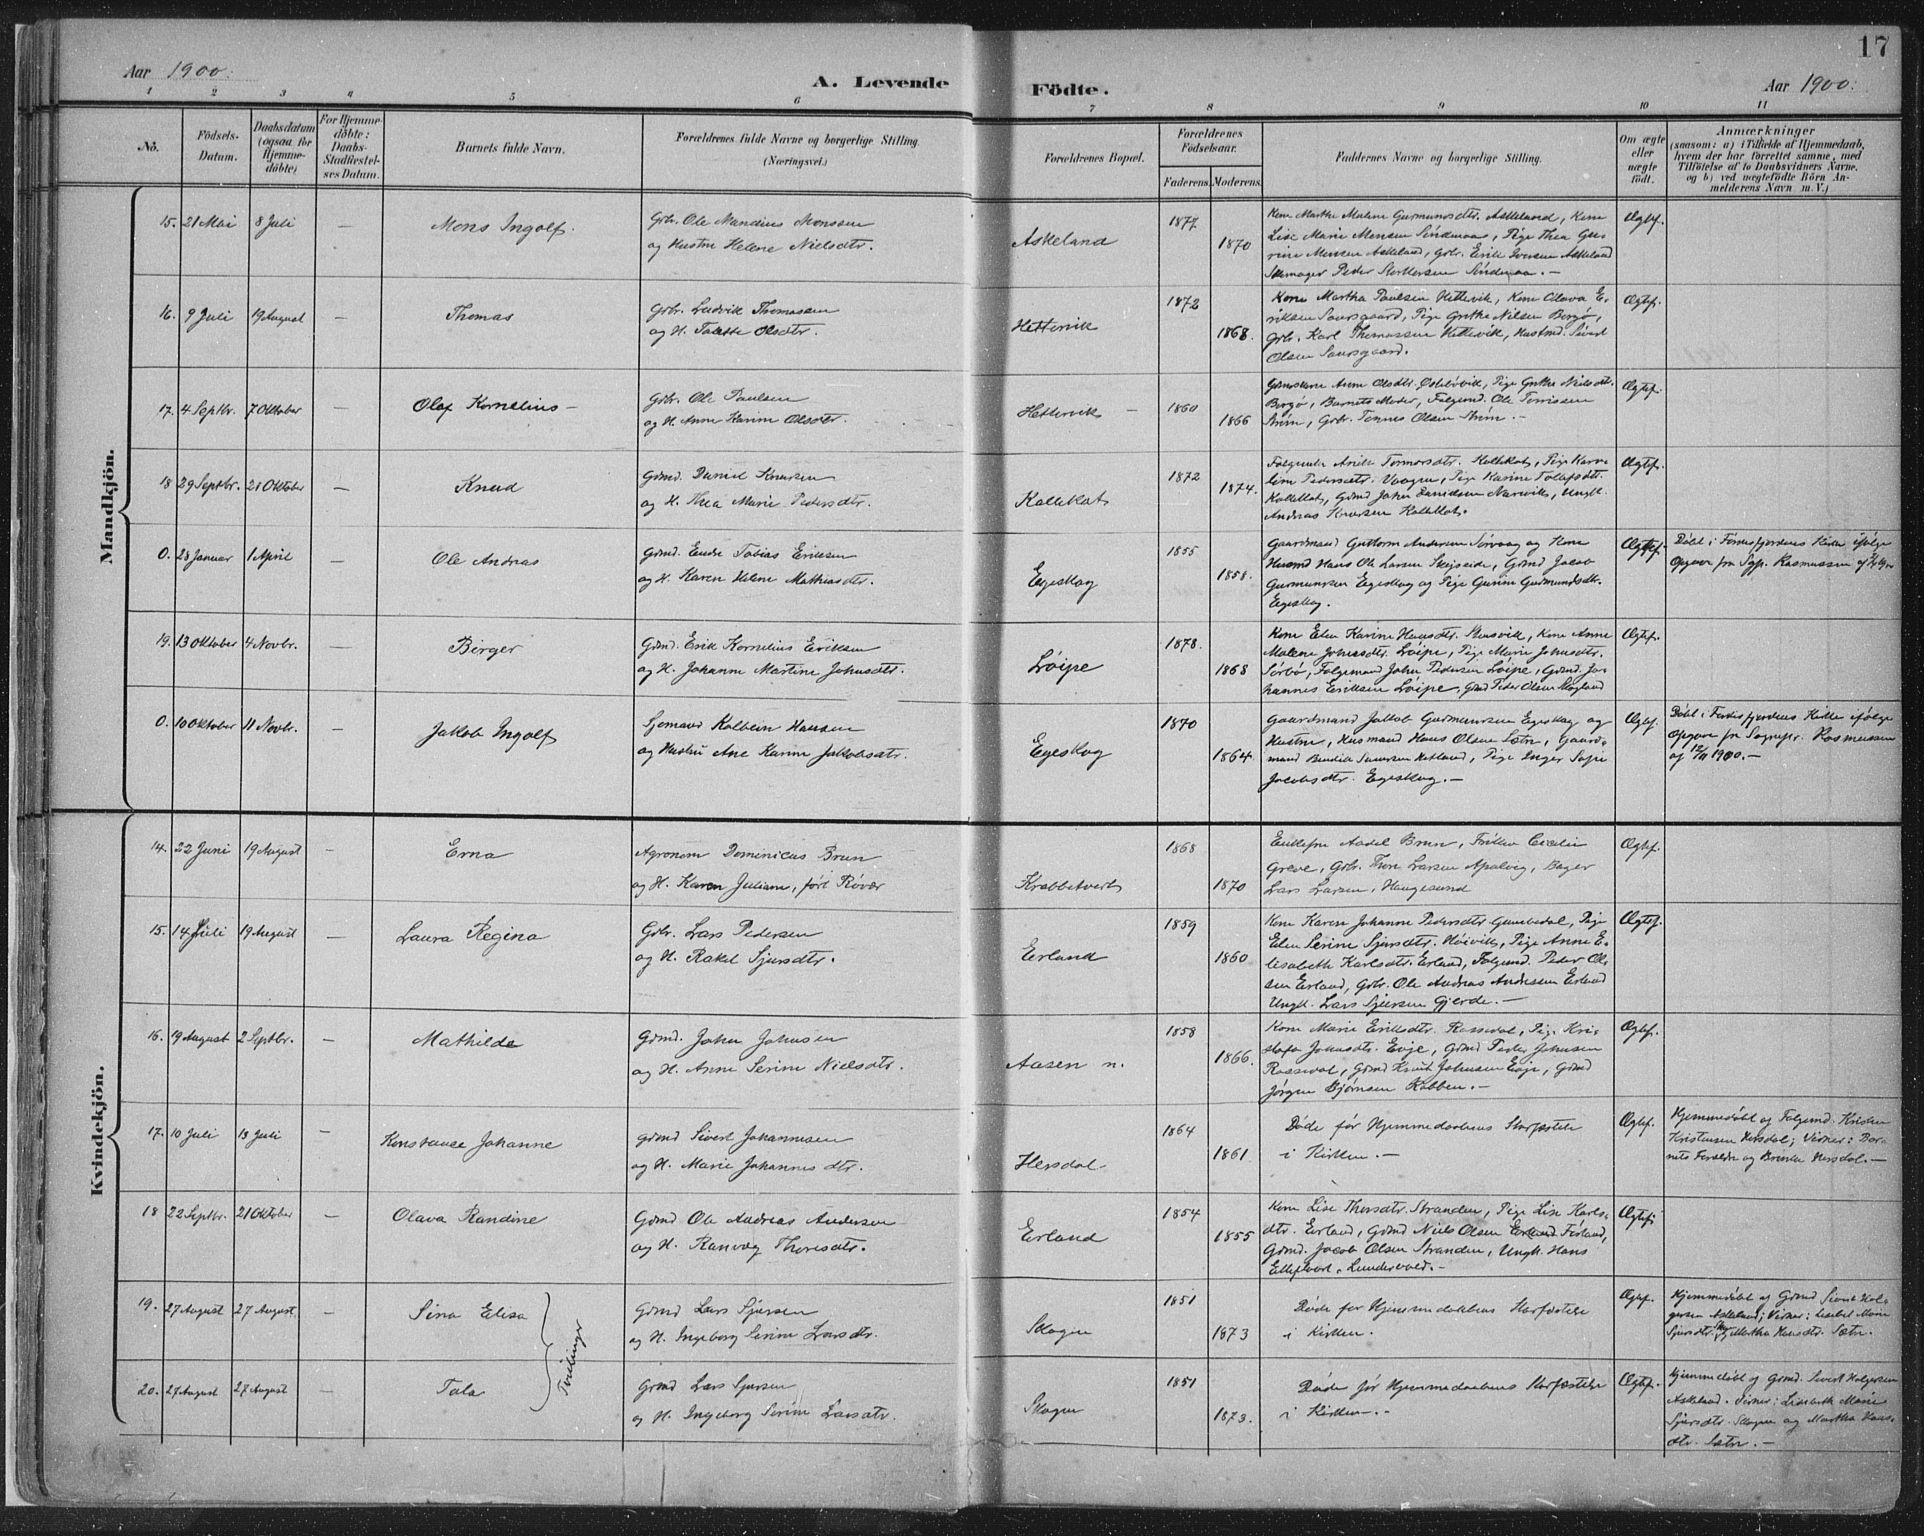 Aar 1900.
A. Levende Födte.
Aar 1900.
17
1 2 3 4 5 6 7 8 9 10 11
No.
Födsels-
Datum.
Daabsdatum
(ogsaa for
Hjemme-
döbte)
For Hjemme-
döbte:
Daabs-
Stadfæstel-
ses Datum.
Barnets fulde Navn.
Forældrenes fulde Navne og borgerlige Stilling.
(Næringsvei.)
Forældrenes Bopæl.
Forældrenes
Födselsaar.
Faderens. Moderens.
Faddernes Navne og borgerlige Stilling.
Om ægte
eller
uægte
födt.
Anmærkninger
(saasom: a) i Tilfælde af Hjemmedaab,
hvem der har forrettet samme, med
Tilföielse af to Daabsvidners Navne.
og b) ved uægtefödte Börn An-
melderens Navn m. V.)
Mandkjön.
15. 21 Mai 8 Juli — Mons Ingolf.
Gbr. Ole Mandius Monssen
og Hustru Helene Nielsdtr.
Askeland 1877 1870
Kone Marthe Malene Gurmundsdtr. Askeland, Kone
Lise Marie Monsen Sindnaa, Pige Thea Gu-
rine Monsen Askeland, Gbr. Erik Iversen Askeland
Peder
Ægtef.
16. 9 Juli 19 August — Thomas
Gbr. Ludvik Thomassen
og H. Tolette Olsdtr.
Hettervik 1872 1868.
Kone Martha Paulsen Hettevik, Kone Olava E-
riksen Saursgaard, Pige Grethe Nilsen Borgø,
Gbr. Karl Thomassen Hettevik, Husmd. Sivert
Olsen Saursgaard.
Ægtef.
17. 4 Septbr. 7 Oktober — Olaf Kornelius —
Gbr. Ole Paulsen
og H. Anne Karine Olsdtr.
Hettervik — 1860 1866
Anne Olsdtr. Pige Grethe Nielsdtr.
Borgø, Barnets Moder, Folgemd. Ole Torrissen
Gbr. Tonnes Olsen
Ægtef.
18 29 Septbr. 21 Oktober — Knud
Grmd. Daniel Knudsen
og H. Thea Marie Pedersdtr.
Kolleklat 1872 1874.
Tormodsdtr. Kolleklat, Pige Karo-
line Pedersdtr. Vaagen, Pige Karine Tolafsdtr.
Kolleklat, Grmd John Danielsen Narvik, Ungk.
Andreas Knudsen Kolleklat.
Ægtef.
0. 28 Januar 1 April — Ole Andreas
Grmd. Endre Tobias Eriksen
og H. Karen Helene Mathiasdtr.
Egeskog 1855 1858.
Gaardmand Guttorm Andersen Sørvaag og Kone
Husmd Hans Ole Larsen Skeiseide, Grmd Jacob
Gurmundsen Egeskog og Pige Gurine Gudmundsdtr.
Egeskog.
Ægtef.
Døbt i Førresfjordens Kirke ifølge
Opgave fra Sgpr. Rasmussen
19. 13 Oktober 4 Novbr. — Birger
Grmd. Erik Kornelius Eriksen
og H. Johanne Martine Johnsdtr.
Løipe 1878. 1868
Kone Elen Karine Hansdtr. Stensvik, Kone Anne
Malene Johnsdtr. Løipe, Pige Marie Johnsdtr.
Sørbø, Folgemand John Pedersen Løipe, Grmd. Jo-
hannes Eriksen Løipe, Grmd Peder Olsen Skogland
Ægtef.
0. 10 Oktober 11 Novbr. — Jakob Ingolf
Sjømand Kolbein Hansen
og Hustru Ane Karine Jakobsdtr.
Egeskog 1870 1864
Gaardmand Jakob Gurmundsen Egeskog og
Hustru, Husmand Hans Olsen Sætre, Gaard-
mand Bendik Ketland, Pige Inger Sofie
Jacobsdtr. Egeskog. —
Ægtef.
Døbt i Førresfjordens Kirke ifølge
Opgave fra Sognepr. Rasmussen
af 12/11 1900. —
Kvindekjön.
14. 22 Juni 19 August — Erna
Agronom Dominicus Brun
og H. Karen Juliane, født Røvær
Krabbetveit 1868 1870
Enkefru Aadel Brun, Frøken Cecilie
Greve, Gbr. Thore Larsen Apalvig, Bager
Lars Larsen, Haugesund
Ægtef.
15. 14 Juli 19 August — Laura Regina
Gbr. Lars Pedersen
og H. Rakel Sjursdtr.
Erland 1859 1860
Kone Karen Johanne Pedersdtr Gunbedal, Pige
Elen Serine Sjursdtr. Høivik, Pige Anne E-
lisabeth Karlsdtr. Erland, Folgemd. Peder Ol-
sen Erland, Gbr. Ole Andreas Andersen Erland
Ungk. Lars Sjursen Gjerde. —
Ægtef.
16. 19 August 2 Septbr. — Mathilde
Grmd. John Johnsen
og H. Anne Serine Nielsdtr.
Aasen n. 1858 1866.
Kone Marie Eriksdtr. Rossedal, Pige Kri-
stofa Johnsdtr. Eoje, Grmd Peder Johnsen
Rossedal, Grmd Knut Johnsen Eoje, Grmd
Jørgen Bjørnsen Kobben. —
Ægtef.
17. 10 Juli 13 Juli — Konstanse Johanne
Grmd Sivert Johannesen
og H. Marie Johannesdtr.
Hersdal 1864 1861.
Døde før Hjemmedaabens Stadfæstelse
i Kirken. —
Ægtef.
Hjemmedøbt af Folgemd. Kristen
Kristensen Hersdal; Vidner: Bar-
nets Forældre og Hersdal. —
18 22 Septbr. 21 Oktober — Olava Randine
Grmd Ole Andreas Andersen
og H. Ranveg Thoresdtr.
Erland 1854 1855
Kone Lise Thorsdtr. Stranden, Pige Lise Karls-
dtr. Erland, Grmd Niels Olsen Erland Førland,
Grmd. Jacob Olsen Stranden, Ungk. Hans
Ægtef.
19. 27 August 27 August — Sina Elisa
Tvillinger
Grmd Lars Sjursen
og H. Ingeborg Serine Larsdtr.
Skogen 1851 1873
Døde før Hjemmedaabens Stadfæstelse
i Kirken.
Ægtef.
Hjemmedøbt af Grmd Sivert Hol-
gersen Askeland; Vidner: Lisebet Marie
Sjursdtr. og Martha Hansdtr. Sætre.
20. 27 August 27 August — Tala
Grmd Lars Sjursen
og H. Ingeborg Serine Larsdtr.
Skogen 1851 1873.
Døde før Hjemmedaabens Stadfæstelse
i Kirken. —
Ægtef.
Hjemmedøbt af Grmd. Sivert Holgersen
Askeland. Vidner: Lisebeth Marie
Sjursdtr. Skogen og Martha Hans-
dtr. Sætre. —